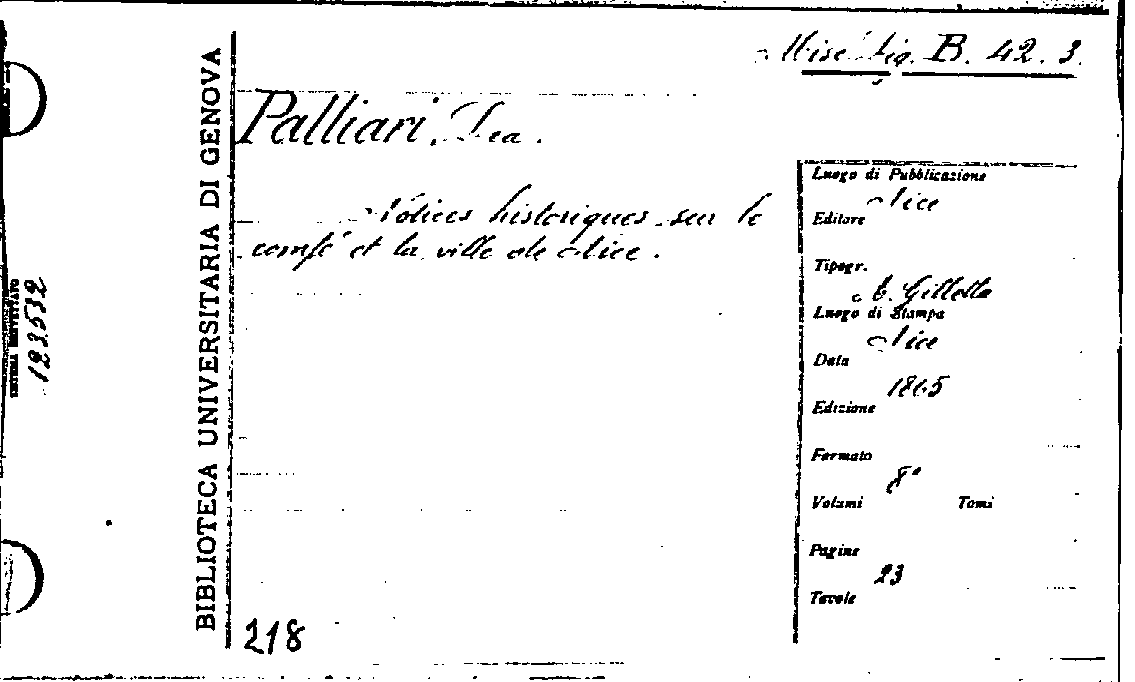 Misc. Lig. B. 42. 3.
BIBLIOTECA UNIVERSITARIA DI GENOVA
Palliari, Lea.
Notices historiques sur le
comté et la ville de Nice.
Luogo di Pubblicazione
Nice
Editore
Tipogr.
A. Gilletta
Luogo di Stampa
Nice
Data
1865
Edizione
Formato
8°
Volumi Tomi
Pagine
23
Tavole
123532
218